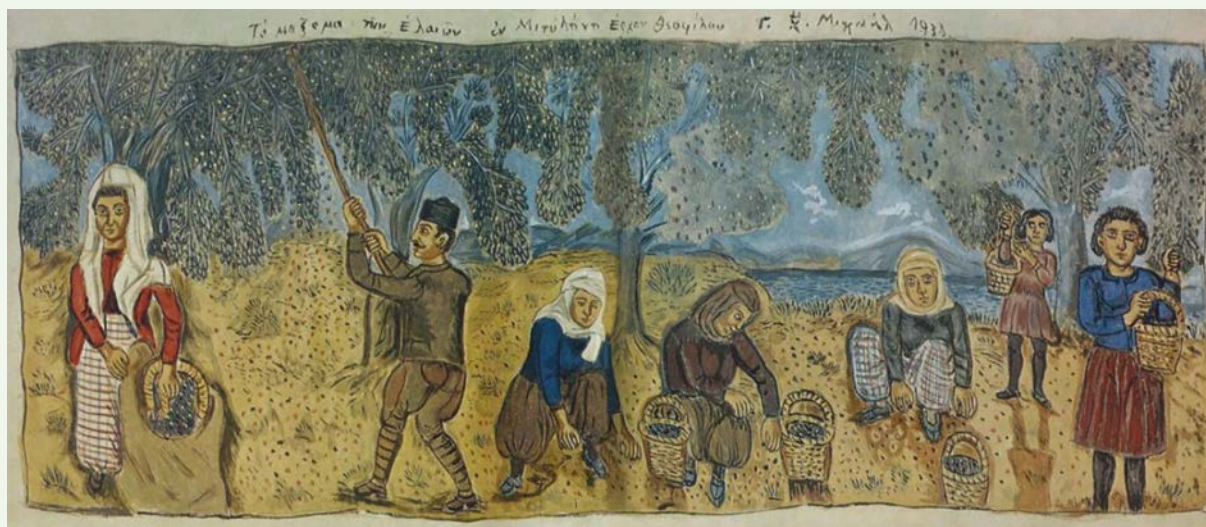 Τό μάζεμα τῶν Ἐλαιῶν ἐν Μιτυλήνη Ἔργον Θεοφίλου Γ. Χ. Μιχαήλ 1933